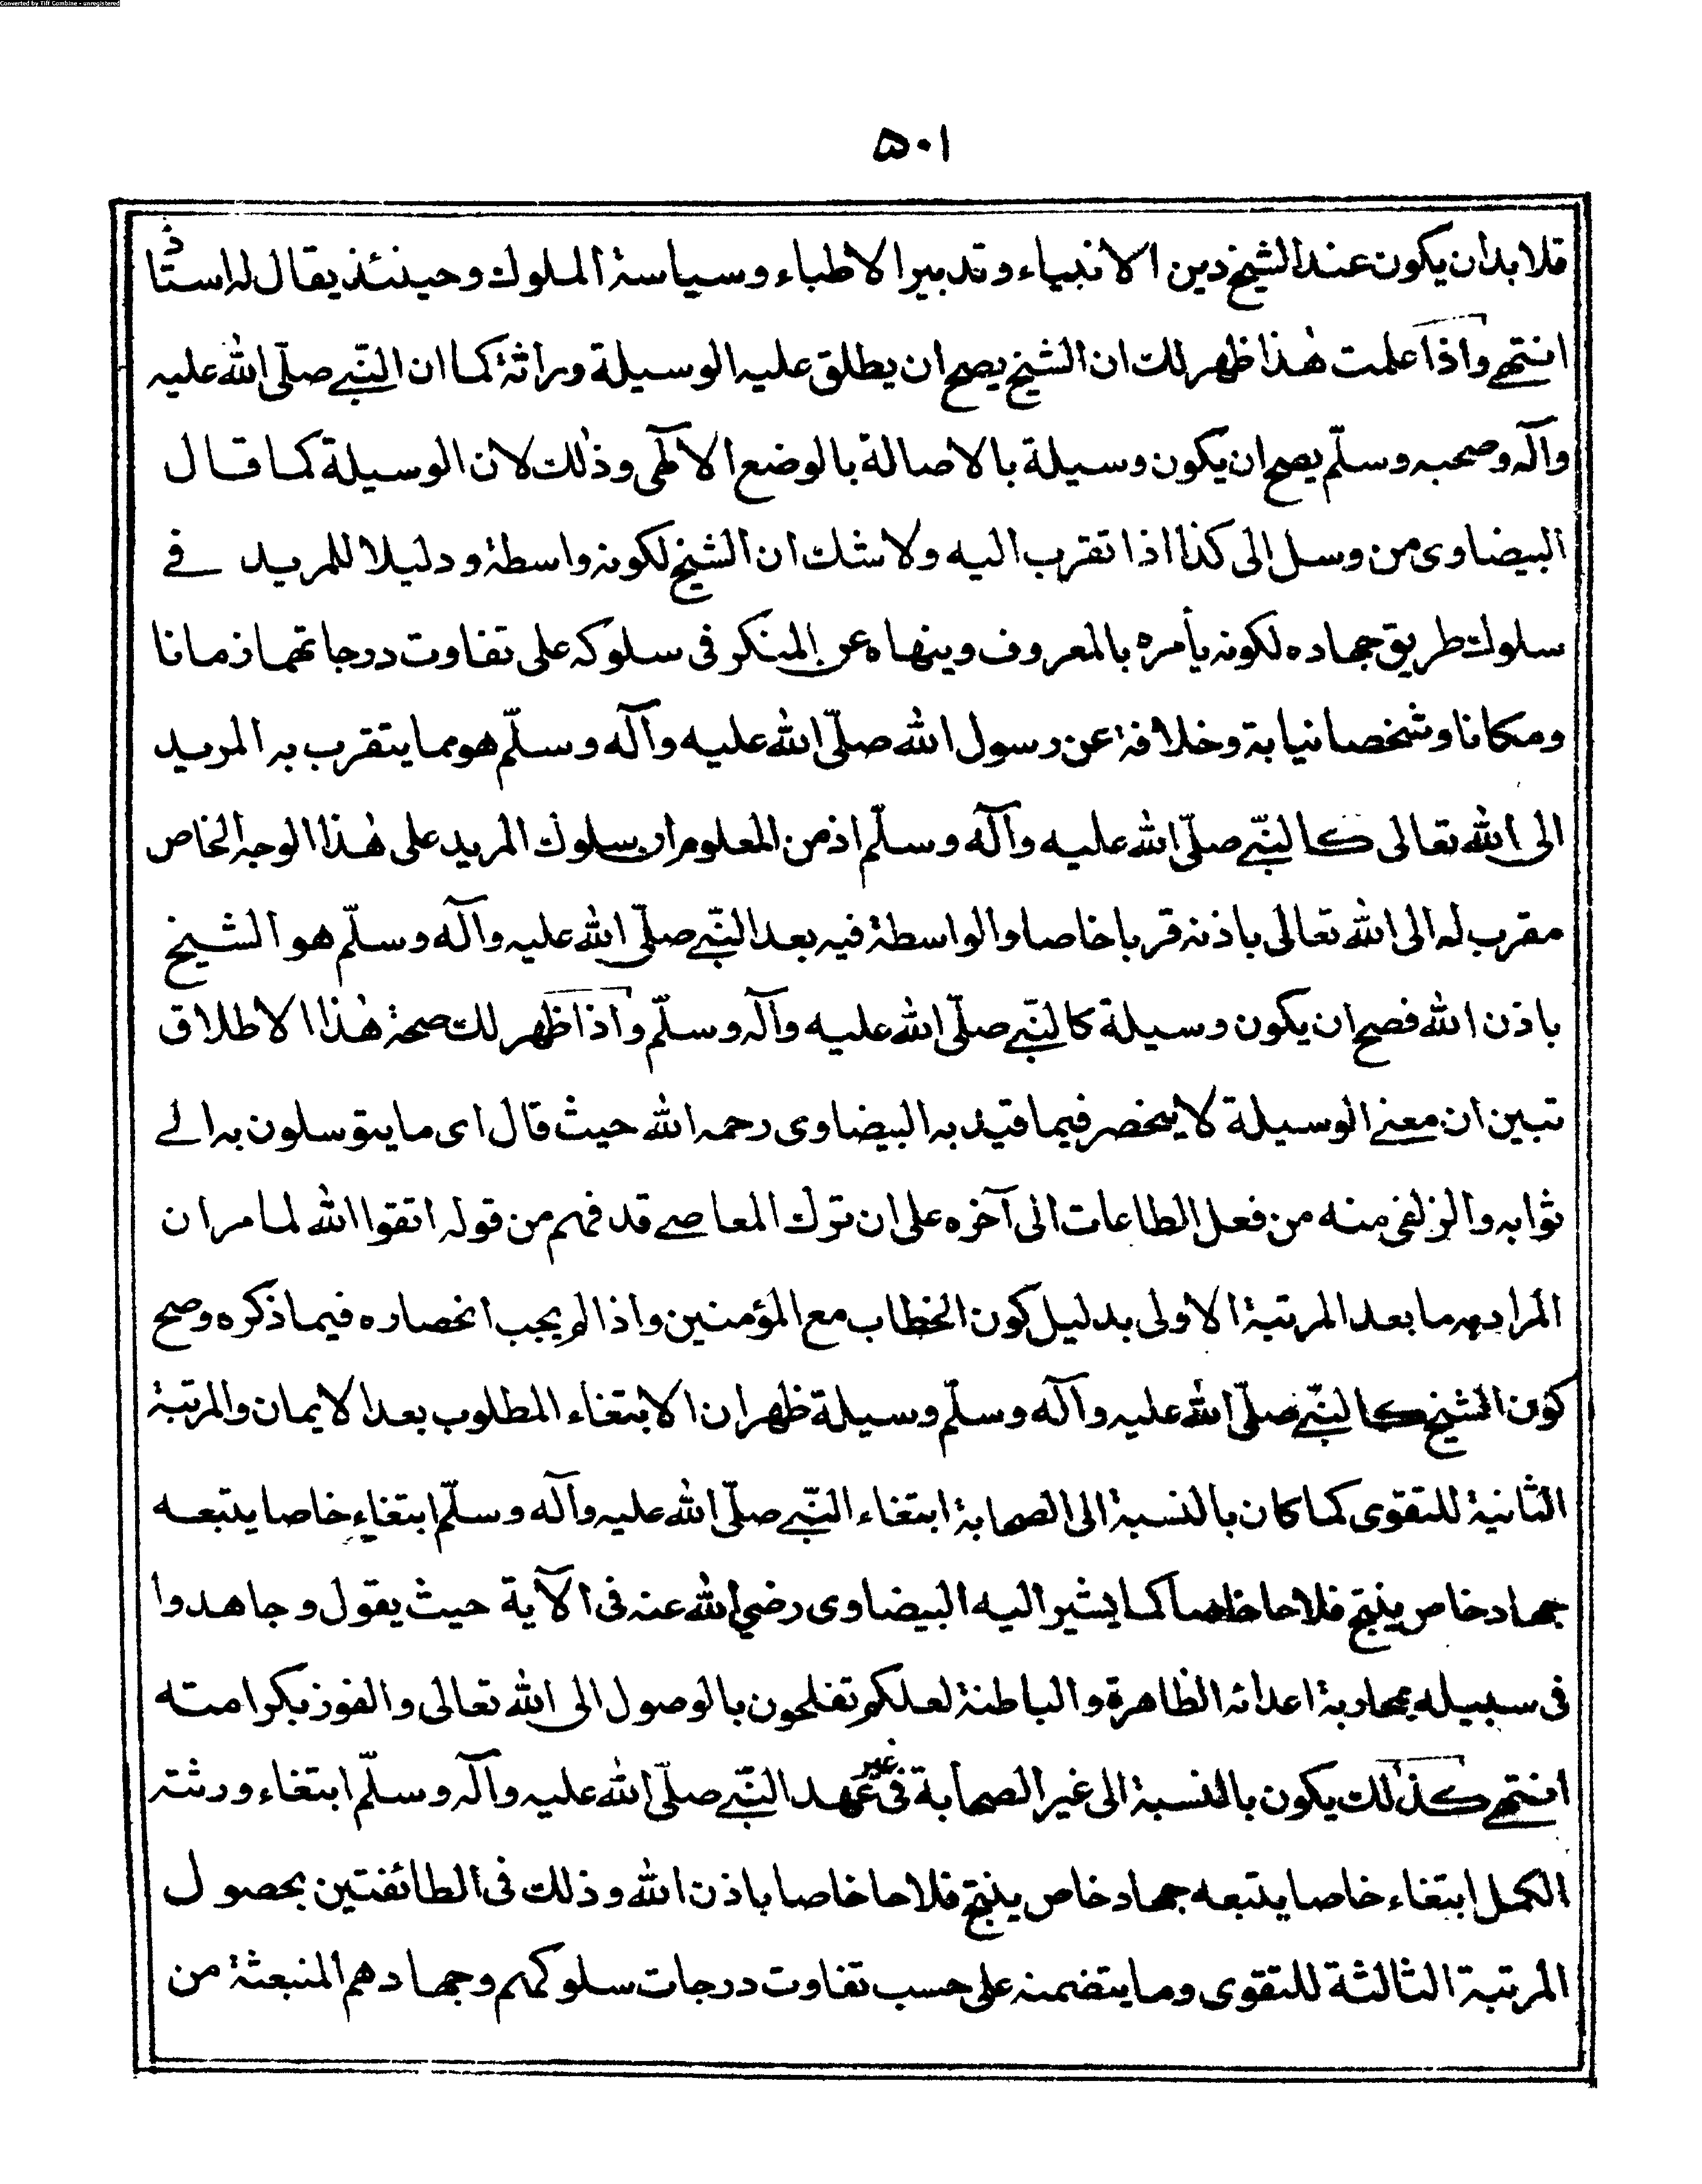 Converted by Tiff Combine - unregistered
۵۰۱
فلا بد ان يكون عند الشيخ دين الانبياء وتدبير الاطباء وسياسة الملوك وحينئذ يقال له استاذ
انتهى واذا علمت هذا ظهر لك ان الشيخ يصح ان يطلق عليه الوسيلة وراثة كما ان النبى صلّى الله عليه
وآله وصحبه وسلّم يصح ان يكون وسيلة بالاصالة بالوضع الالٰهى وذٰلك لان الوسيلة كما قال
البيضاوى من وسل الى كذا اذا تقرب اليه ولا شك ان الشيخ لكونه واسطة ودليلا للمريد فى
سلوك طريق جهاده لكونه يأمره بالمعروف وينهاه عن المنكر فى سلوكه على تفاوت درجاتهما زمانا
ومكانا وشخصا نيابة وخلافة عن رسول الله صلّى الله عليه وآله وسلّم هو مما يتقرب به المريد
الى الله تعالى كالنبى صلّى الله عليه وآله وسلّم اذ من المعلوم ان سلوك المريد على هٰذا الوجه الخاص
مقرب له الى الله تعالى باذنه قربا خاصا والواسطة فيه بعد النبى صلّى الله عليه وآله وسلّم هو الشيخ
باذن الله فصح ان يكون وسيلة كالنبى صلّى الله عليه وآله وسلّم واذا ظهر لك صحة هٰذا الاطلاق
تبين ان معنى الوسيلة لا ينحصر فيما قيد به البيضاوى رحمه الله حيث قال اى ما يتوسلون به الى
ثوابه والزلفى منه من فعل الطاعات الى آخره على ان ترك المعاصى قد فهم من قوله اتقوا الله لما مر ان
المراد به ما بعد المرتبة الاولى بدليل كون الخطاب مع المؤمنين واذا لم يجب انحصاره فيما ذكره وصح
كون الشيخ كالنبى صلّى الله عليه وآله وسلّم وسيلة ظهر ان الابتغاء المطلوب بعد الايمان والمرتبة
الثانية للتقوى كما كان بالنسبة الى الصحابة ابتغاء النبى صلّى الله عليه وآله وسلّم ابتغاء خاصا يتبعه
جهاد خاص ينتج فلاحا خاصا كما يشير اليه البيضاوى رضى الله عنه فى الآية حيث يقول وجاهدوا
فى سبيله بمحاربة اعدائه الظاهرة والباطنة لعلكم تفلحون بالوصول الى الله تعالى والفوز بكرامته
انتهى كذٰلك يكون بالنسبة الى غير الصحابة فى غير عهد النبى صلّى الله عليه وآله وسلّم ابتغاء ورثته
الكمل ابتغاء خاصا يتبعه جهاد خاص ينتج فلاحا خاصا باذن الله وذلك فى الطائفتين بحصول
المرتبة الثالثة للتقوى وما يتضمنه على حسب تفاوت درجات سلوكهم وجهادهم المنبعثة من